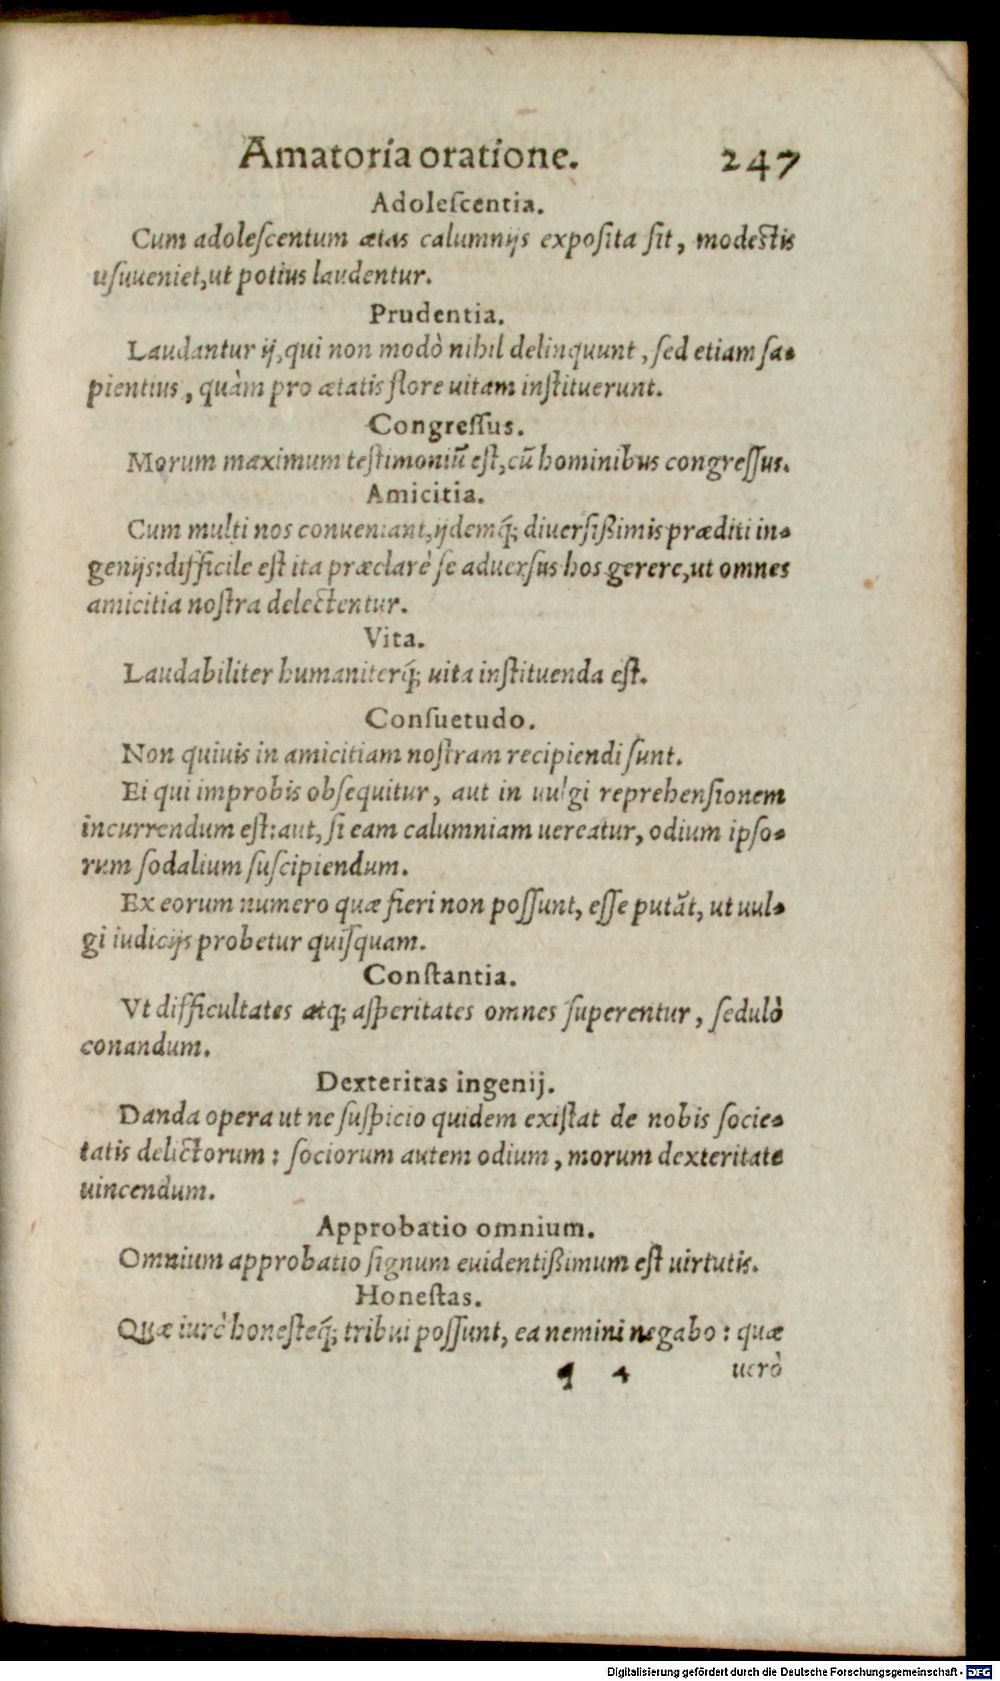 Amatoria oratione. 247
Adoleſcentia.
Cum adoleſcentum ætas calumnijs expoſita ſit, modeſtis
uſuueniet, ut potius laudentur.
Prudentia.
Laudantur ij, qui non modò nihil delinquunt, ſed etiam ſa-
pientius, quàm pro ætatis flore uitam inſtituerunt.
Congreſſus.
Morum maximum teſtimoniũ eſt, cũ hominibus congreſſus.
Amicitia.
Cum multi nos conueniant, ijdemq́; diuerſißimis præditi in-
genijs: difficile eſt ita præclarè ſe aduerſus hos gerere, ut omnes
amicitia noſtra delectentur.
Vita.
Laudabiliter humaniterq́; uita inſtituenda eſt.
Conſuetudo.
Non quiuis in amicitiam noſtram recipiendi ſunt.
Ei qui improbis obſequitur, aut in uulgi reprehenſionem
incurrendum eſt: aut, ſi eam calumniam uereatur, odium ipſo-
rum ſodalium ſuſcipiendum.
Ex eorum numero quæ fieri non poſſunt, eſſe putãt, ut uul-
gi iudicijs probetur quiſquam.
Conſtantia.
Vt difficultates atq; aſperitates omnes ſuperentur, ſedulò
conandum.
Dexteritas ingenij.
Danda opera ut ne ſuſpicio quidem exiſtat de nobis ſocie-
tatis delictorum: ſociorum autem odium, morum dexteritate
uincendum.
Approbatio omnium.
Omnium approbatio ſignum euidentißimum eſt uirtutis.
Honeſtas.
Quæ iurè honeſteq́; tribui poſſunt, ea nemini negabo: quæ
q 4 uerò
Digitalisierung gefördert durch die Deutsche Forschungsgemeinschaft - DFG